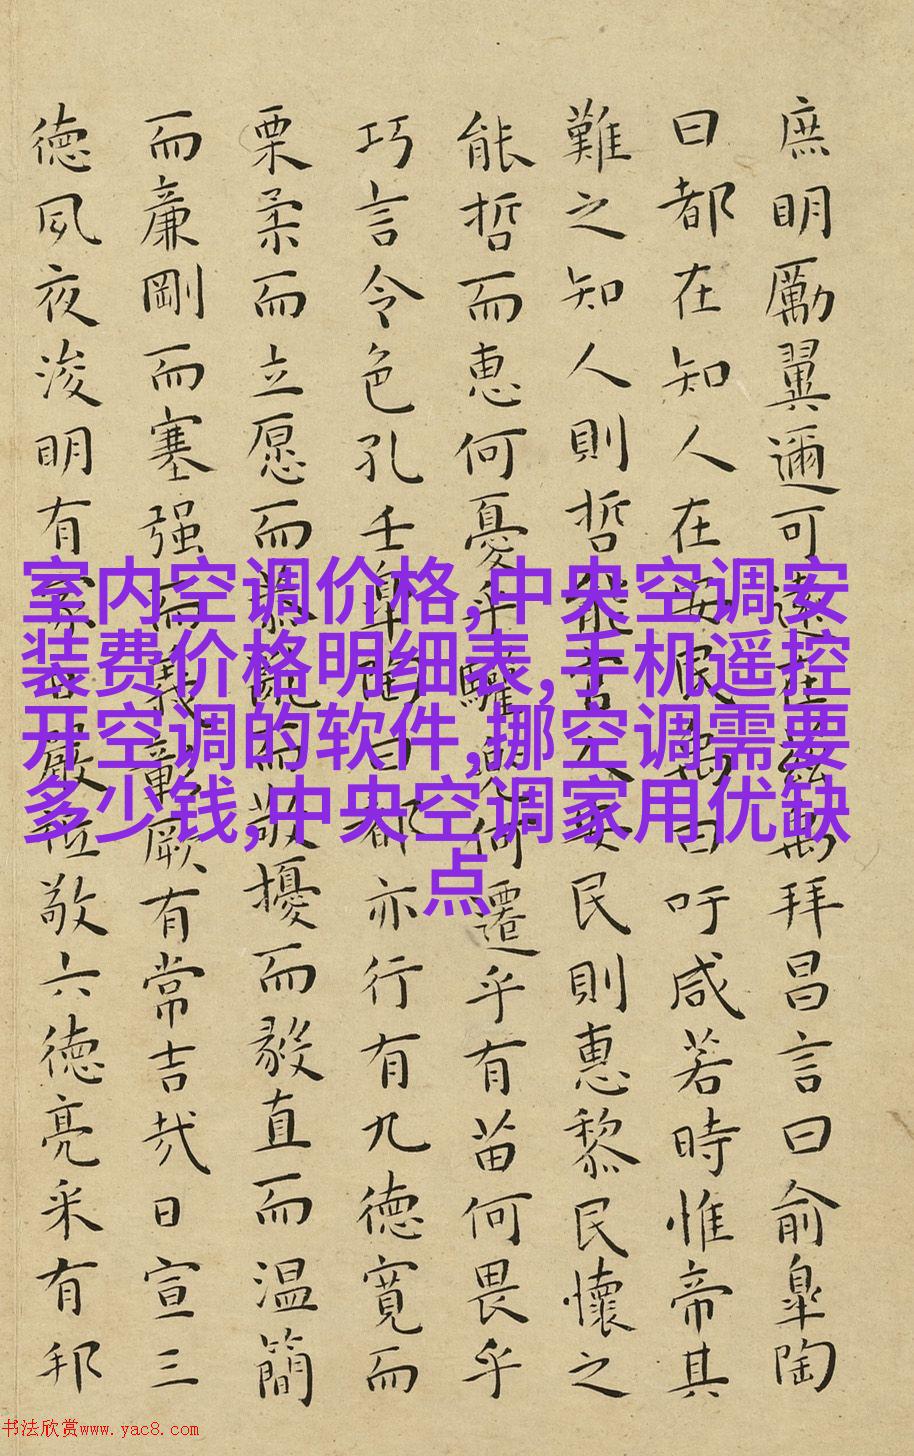 庶明勵翼邇可遠在兹禹拜昌言曰俞皐陶
曰都在知人在安民禹曰吁咸若時惟帝其
難之知人則哲能官人安民則惠黎民懷之
能哲而惠何憂乎驩兜何遷乎有苗何畏乎
巧言令色孔壬皐陶曰都亦行有九德寬而
栗柔而立愿而恭亂而敬擾而毅直而温簡
而廉剛而塞强而義彰厥有常吉哉日宣三
德夙夜浚明有家日嚴祗敬六德亮采有邦
室内空调价格,中央空调安
装费价格明细表,手机遥控
开空调的软件,挪空调需要
多少钱,中央空调家用优缺
点
书法欣赏www.yac8.com